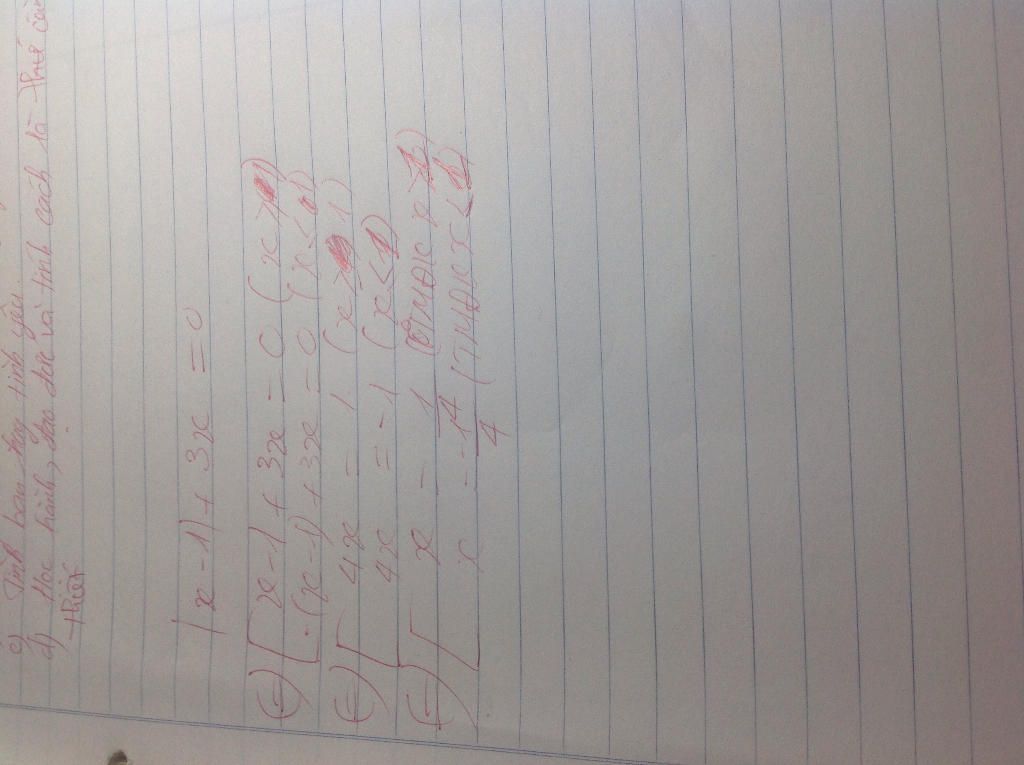 c) Tình bạn hay tình yêu.
d) Học hành, đạo đức và tính cách là thế
thiết
|x - 1| + 3x = 0
⇔ [ x - 1 + 3x = 0 (x ≥
[ -(x - 1) + 3x = 0 (x < 1)
⇔ [ 4x = 1 (x ≥ 1)
[ 4x = -1 (x < 1)
⇔ [ x = 1/4 (0TMĐK x ≥ 1)
[ x = -1/4 (TMĐK x < 1)